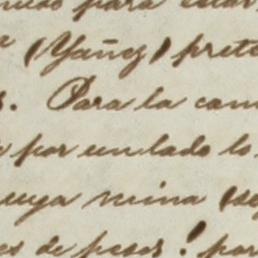 para estar
(Yañez) prete
Para la cam
por un lado lo
cuya ruina (se
es de pesos! por